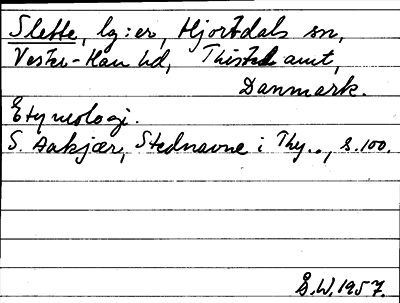 Slette, lg:er, Hjortdals sn,
Vester-Han hd, Thisted amt,
Danmark.
Etymologi.
S. Aakjær, Stednavne i Thy.., s.100.
S.W. 1957.